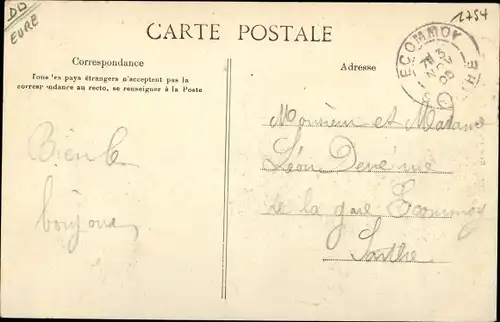 DD
EURE
1754
CARTE POSTALE
ECOMMOY
Correspondance
Adresse
Tous les pays étrangers n'acceptent pas la
correspondance au recto, se renseigner à la Poste
Monsieur et Madame
Bien le
Léon
bonjour
de la gare Ecommoy
Sarthe